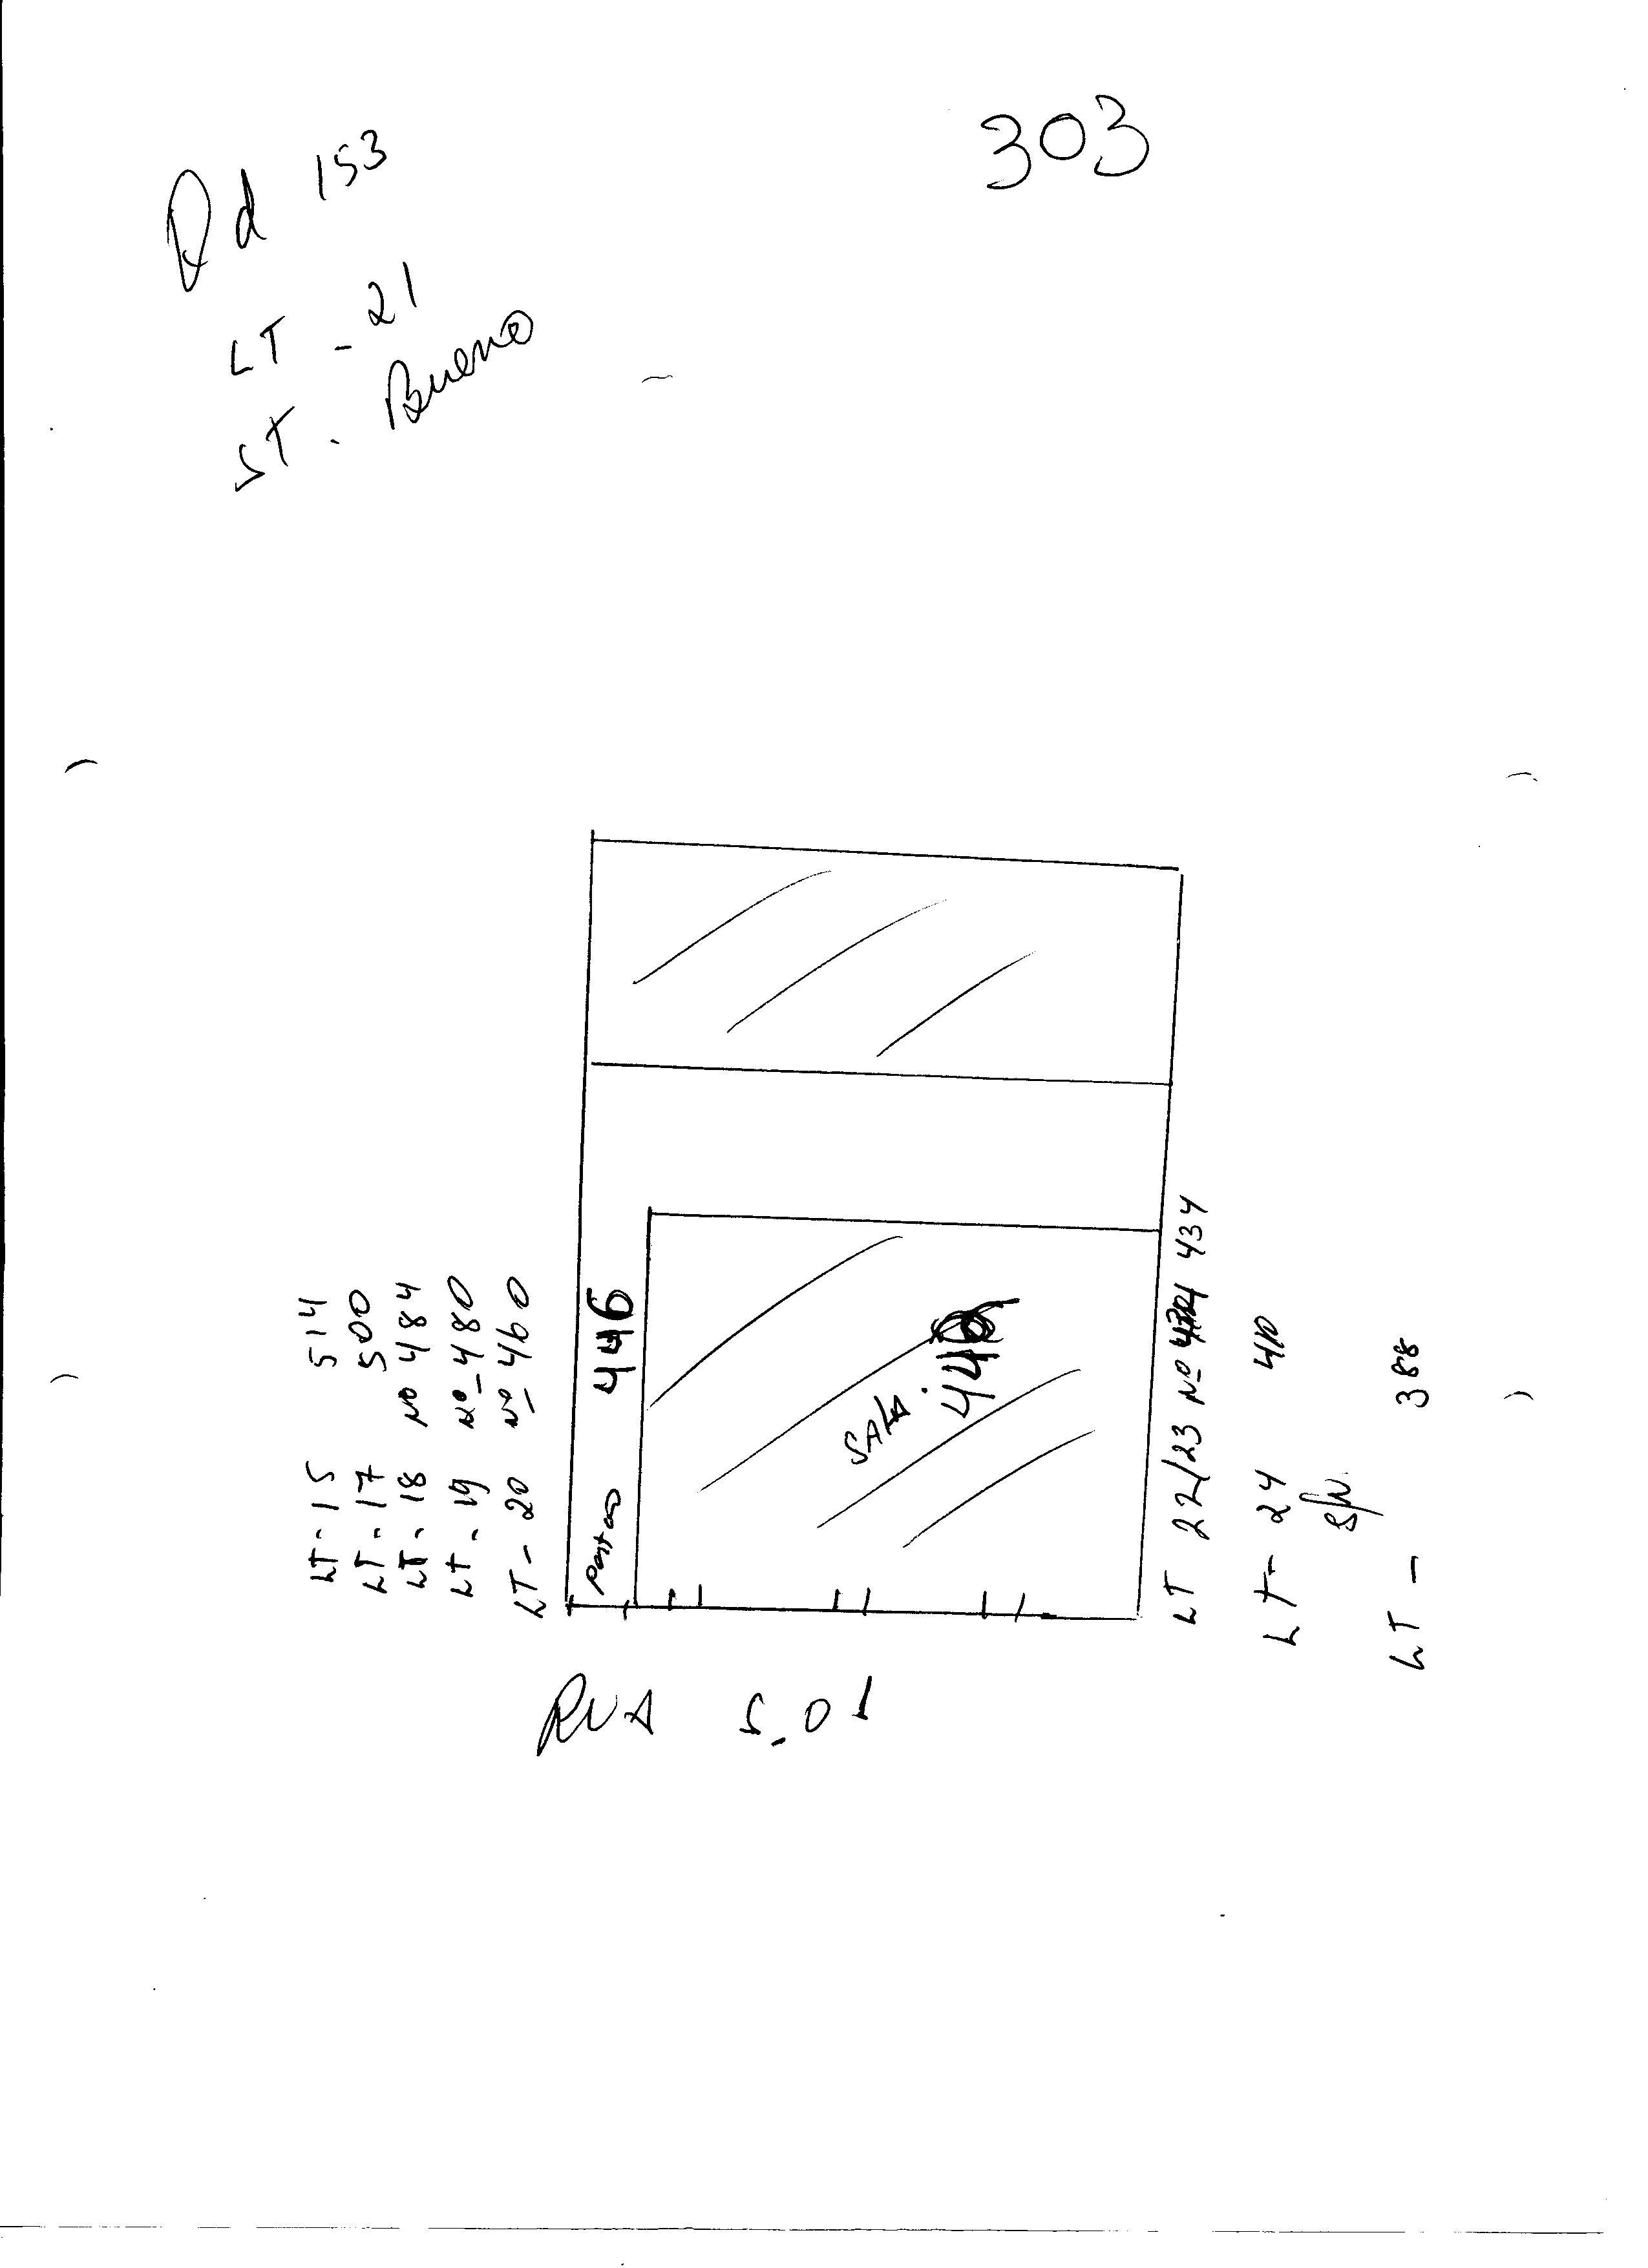 303
Qd 153
LT - 21
ST. Bueno
LT - 15 514
LT - 17 500
LT - 18 Nº 484
LT - 19 Nº 480
LT - 20 Nº 460
446
SALA
LT 22/23 Nº 434
LT - 24 410
S/N
LT - 388
RUA S.01